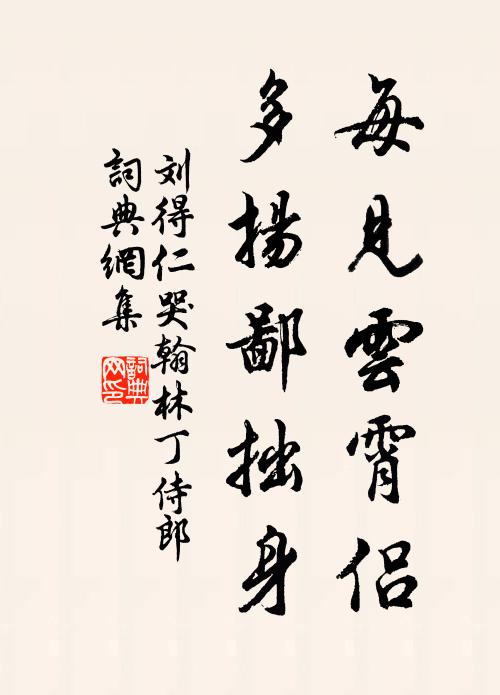 每見雲霄侶
多揚鄙拙身
刘得仁哭翰林丁侍郎
詞典網集
詞典
网印